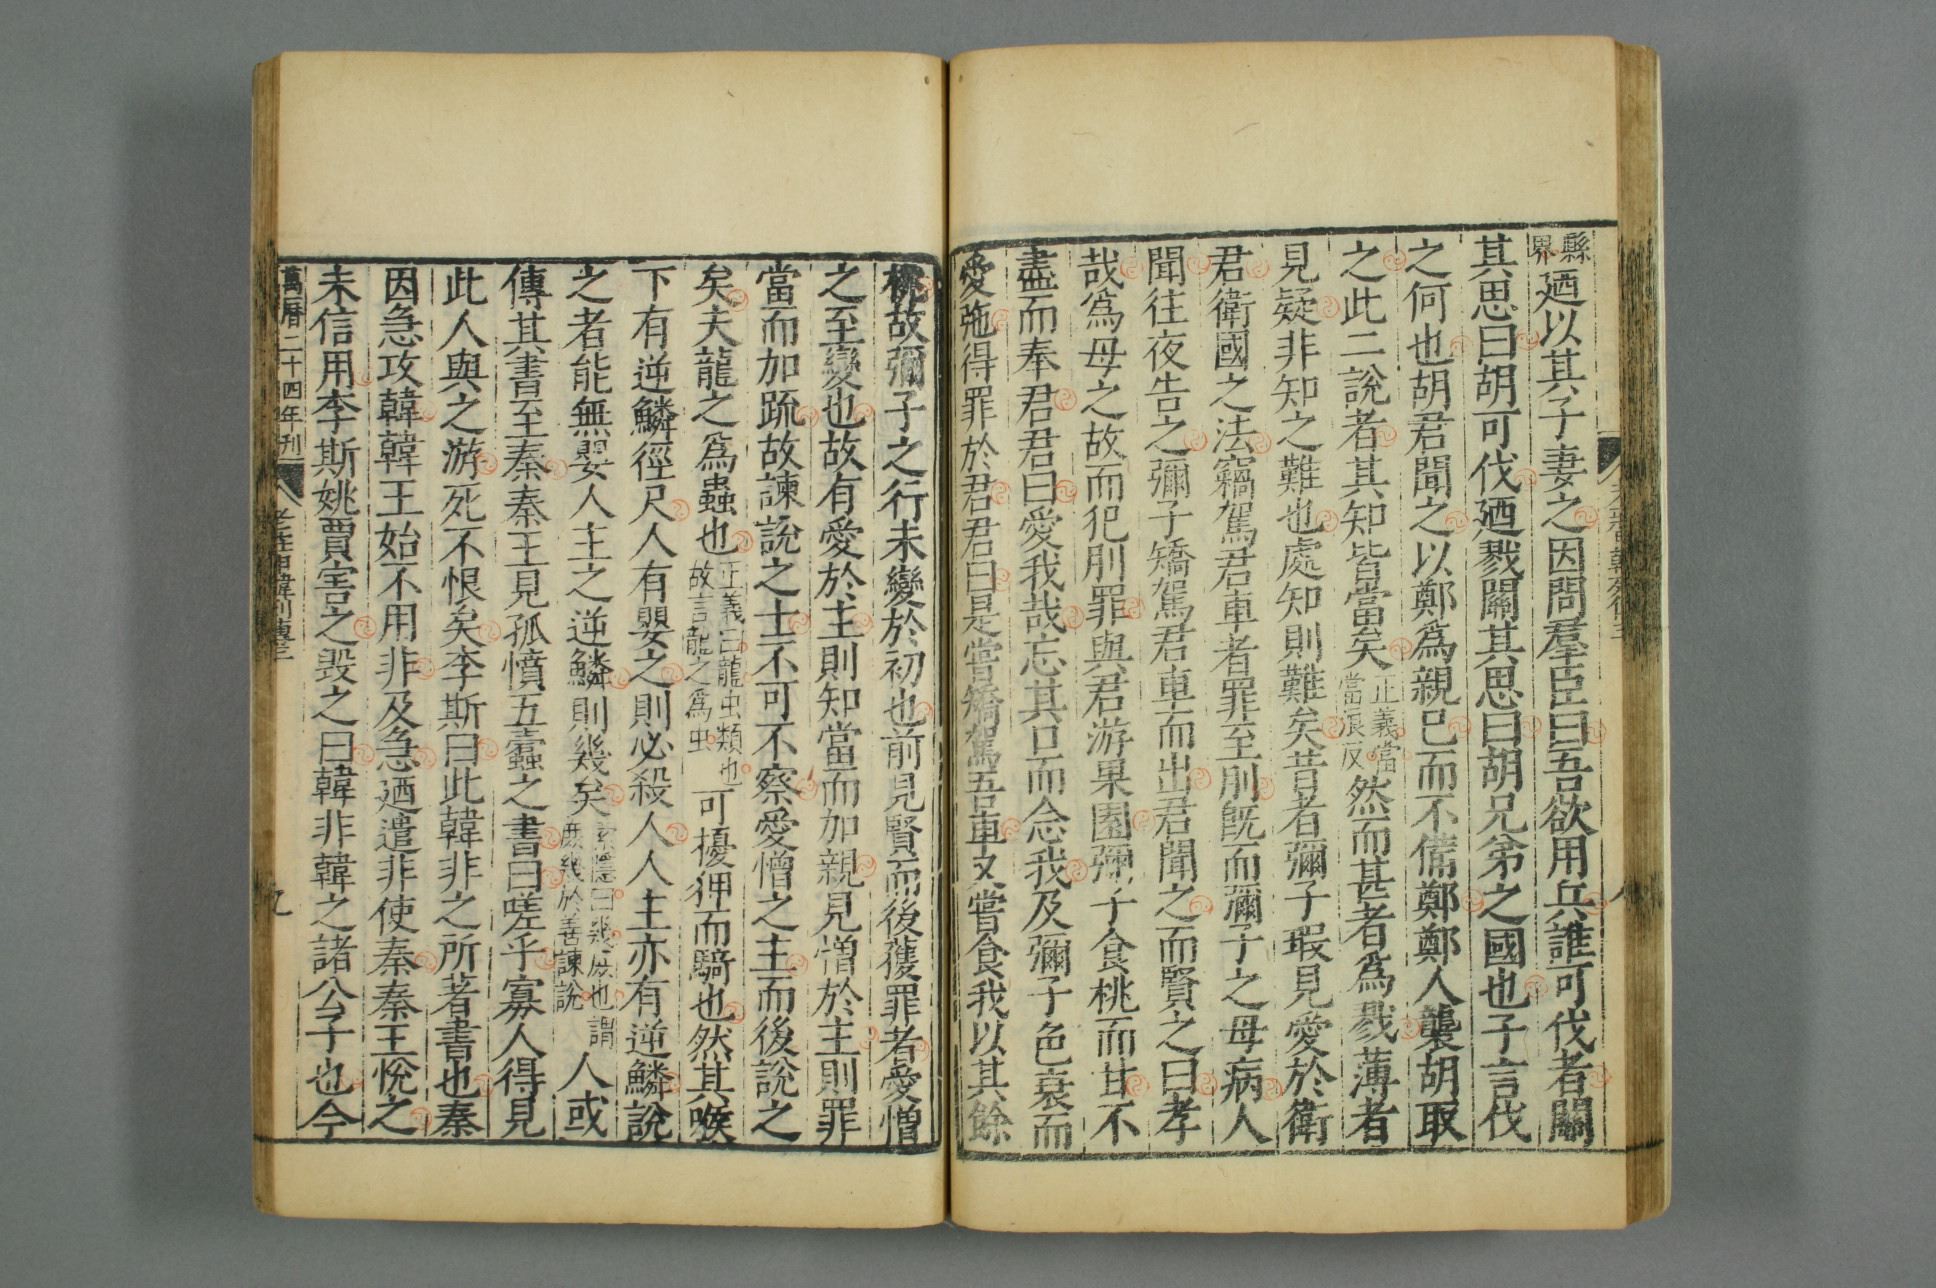 縣界廼以其子妻之因問羣臣曰吾欲用兵誰可伐者關
其思曰胡可伐廼戮關其思曰胡兄弟之國也子言伐
之何也胡君聞之以鄭爲親己而不備鄭鄭人襲胡取
之此二說者其知皆當矣正義當當浪反然而甚者爲戮薄者
見疑非知之難也處知則難矣昔者彌子瑕見愛於衛
君衛國之法竊駕君車者罪至刖旣而彌子之母病人
聞往夜告之彌子矯駕君車而出君聞之而賢之曰孝
哉爲母之故而犯刖罪與君游果園彌子食桃而甘不
盡而奉君君曰愛我哉忘其口而念我及彌子色衰而
愛弛得罪於君君曰是嘗矯駕吾車又嘗食我以其餘
桃故彌子之行未變於初也前見賢而後獲罪者愛憎
之至變也故有愛於主則知當而加親見憎於主則罪
當而加疏故諫說之士不可不察愛憎之主而後說之
矣夫龍之爲蟲也正義曰龍虫類也故言龍之爲虫可擾狎而騎也然其喉
下有逆鱗徑尺人有嬰之則必殺人人主亦有逆鱗說
之者能無嬰人主之逆鱗則幾矣索隱曰幾庶也謂庶幾於善諫說人或
傳其書至秦秦王見孤憤五蠹之書曰嗟乎寡人得見
此人與之游死不恨矣李斯曰此韓非之所著書也秦
因急攻韓韓王始不用非及急廼遣非使秦秦王悅之
未信用李斯姚賈害之毀之曰韓非韓之諸公子也今
萬曆二十四年刊 老莊申韓列傳三 九